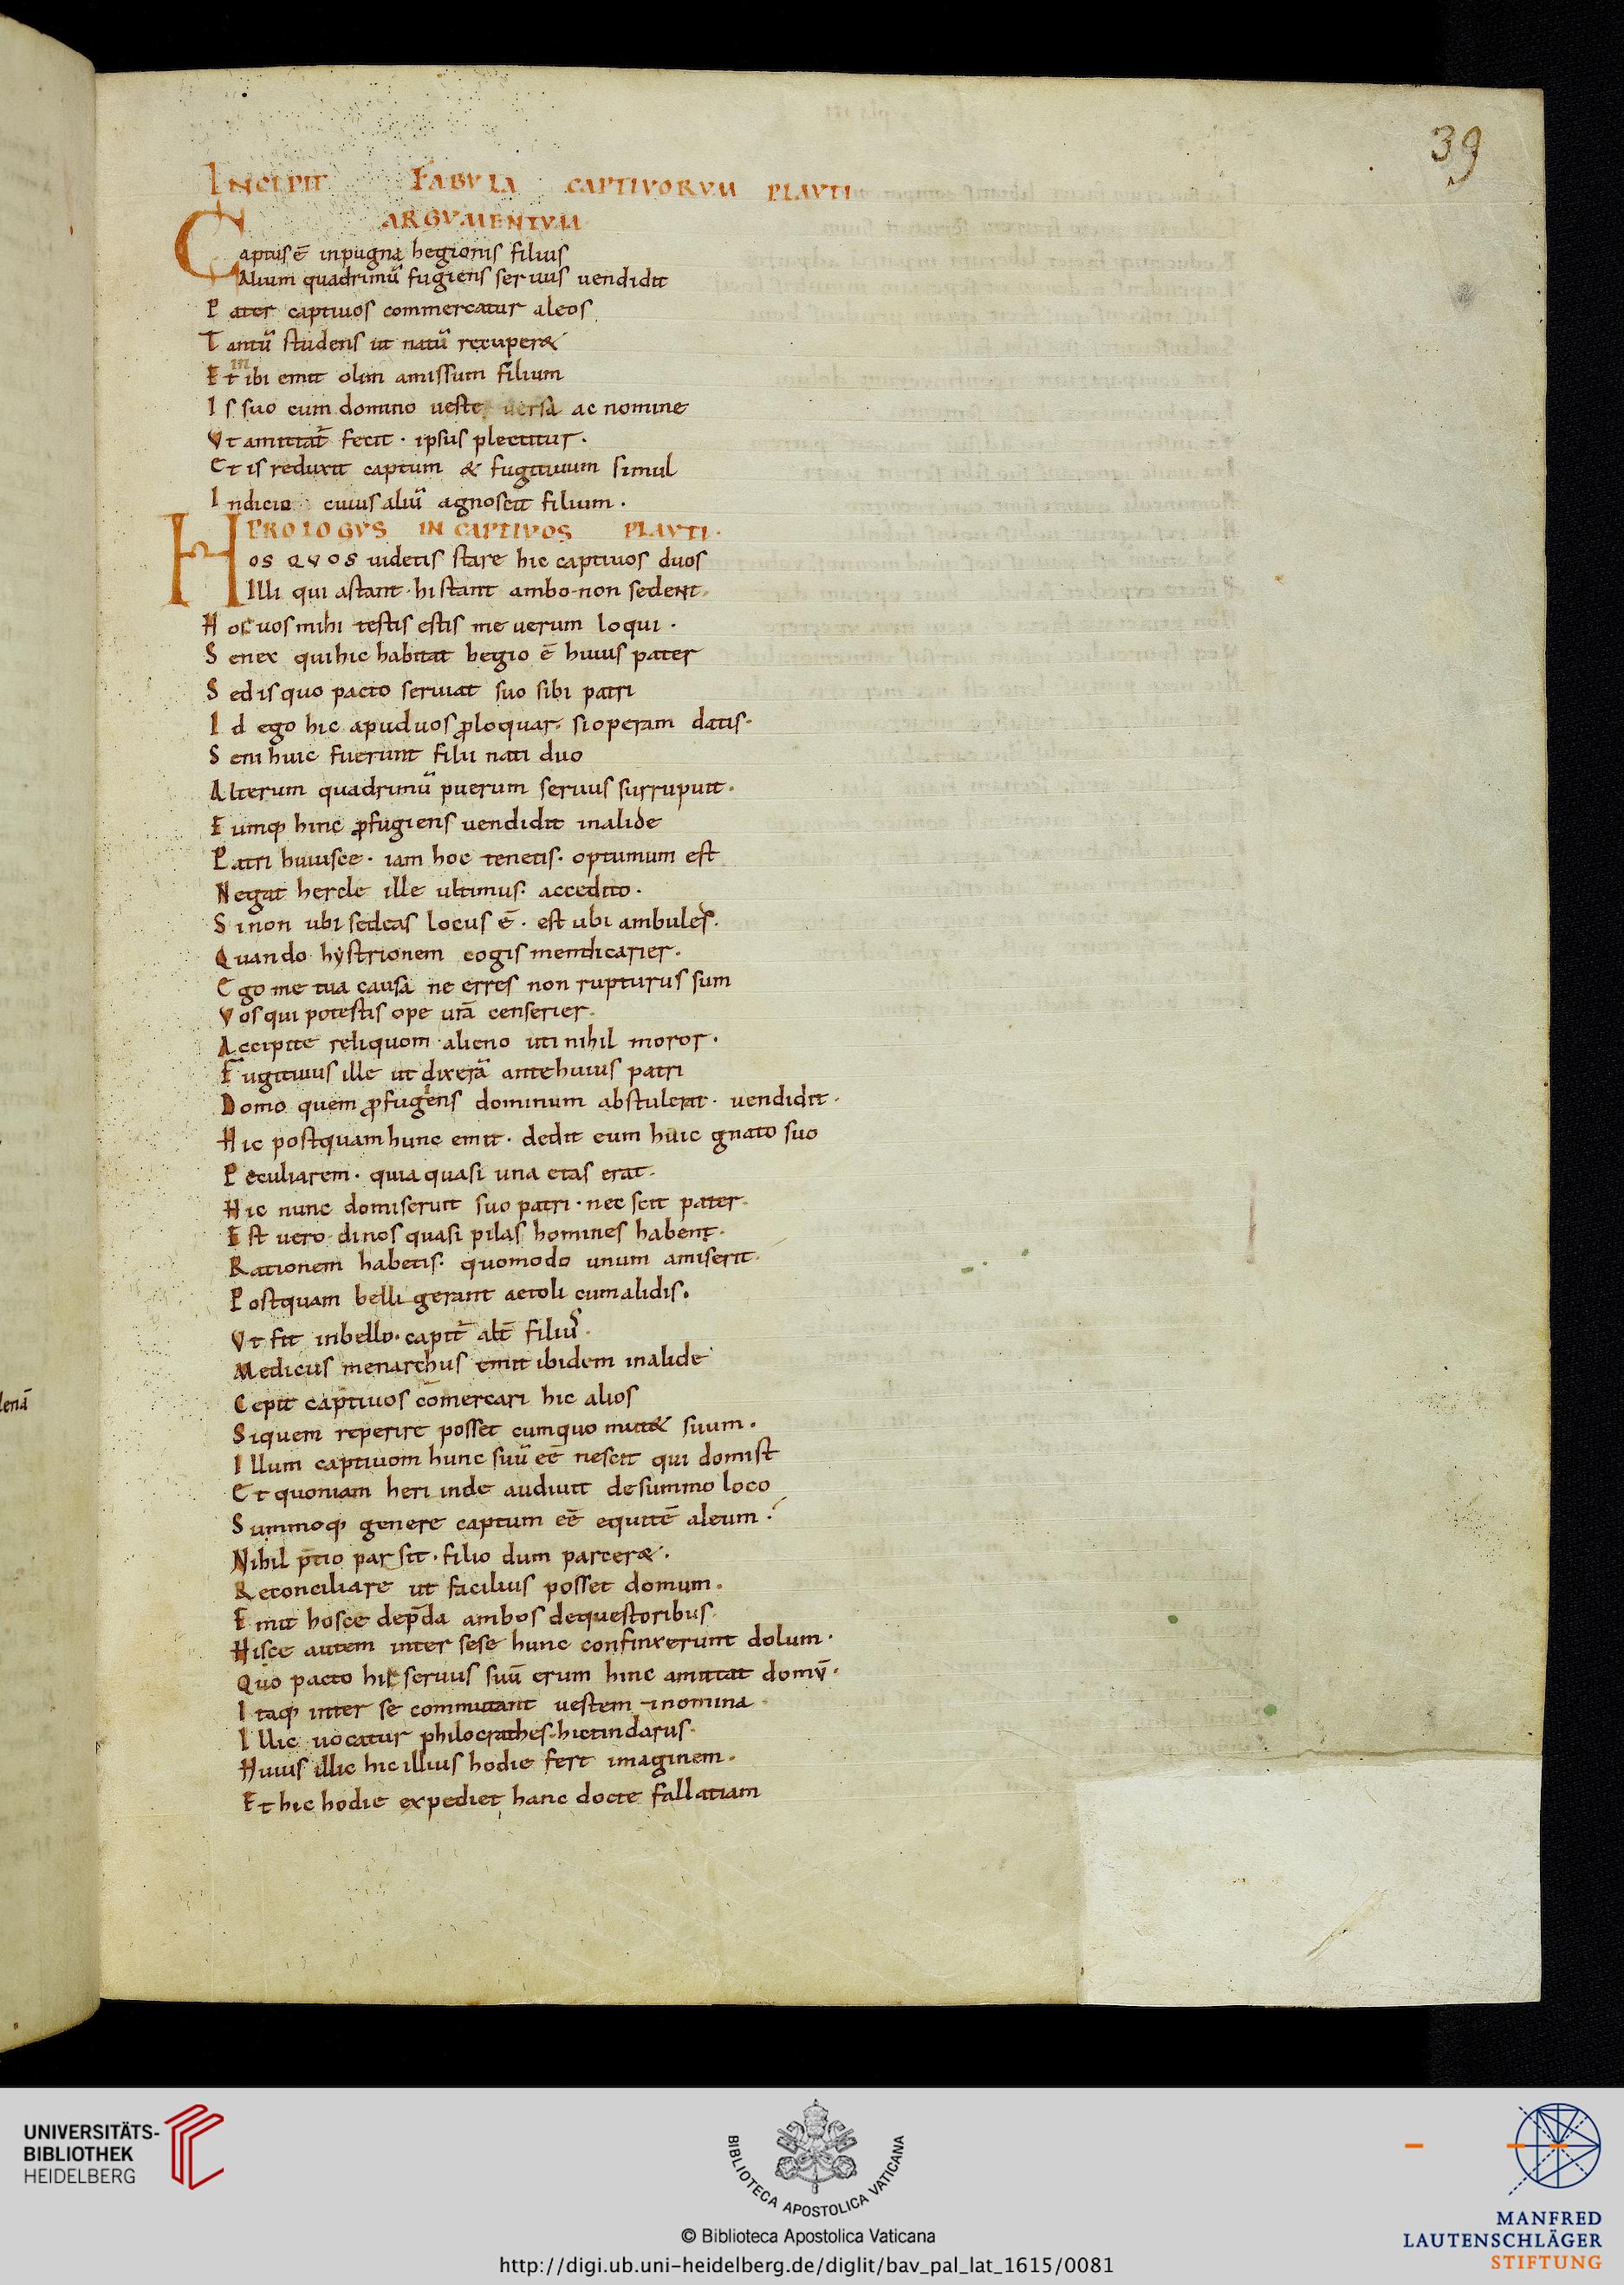 39
INCIPIT FABVLA CAPTIVORVM PLAVTI
ARGVMENTVM
Captus ē inpugna hegionis filius
Alium quadrimū fugiens seruus uendidit
Pater captiuos commercatur aleos
Tantū studens ut natū recuper&
Et ibi emit olim amissum filium
Is suo cum domino ueste uersa ac nomine
Vt amittat̄ fecit · ipsus plectitur ·
Et is reduxit captum & fugitiuum simul
Indicio cuius aliū agnoscit filium ·
PROLOGVS IN CAPTIVOS PLAVTI ·
HOS QVOS uidetis stare hic captiuos duos
Illi qui astant · hi stant ambo · non sedent ·
Hoc uos mihi testis estis me uerum loqui ·
Senex qui hic habitat hegio ē huius pater
Sed is quo pacto seruiat suo sibi patri
Id ego hic apud uos ꝓloquar · si operam datis ·
Seni huic fuerunt filii nati duo
Alterum quadrimū puerum seruus surrupuit ·
Eumq; hinc ꝓfugiens uendidit in alide
Patri huiusce · iam hoc tenetis · optumum est
Negat hercle ille ultimus · accedito ·
Si non ubi sedeas locus ē · est ubi ambules ·
Quando hystrionem cogis mendicarier ·
Ego me tua causa ne erres non rupturus sum
Vos qui potestis ope urā censerier ·
Accipite reliquom · alieno uti nihil moror ·
Fugitiuus ille ut dixerā ante huius patri
Domo quem ꝓfugiens dominum abstulerat · uendidit ·
Hic postquam hunc emit · dedit eum huic gnato suo
Peculiarem · quia quasi una etas erat ·
Hic nunc domi seruit suo patri · nec scit pater ·
Est uero · di nos quasi pilas homines habent ·
Rationem habetis · quomodo unum amiserit ·
Postquam belli gerant aetoli cum alidis ·
Vt fit in bello · capit̄ alt̄ filius ·
Medicus menarchus emit ibidem in alide
Cepit captiuos cōmercari hic alios
Si quem reperire posset cum quo mut& suum ·
Illum captiuom hunc suū eē nescit qui domist
Et quoniam heri inde audiuit de summo loco
Summoq; genere captum eē equitē aleum ·
Nihil p̄tio parsit · filio dum parcer& ·
Reconciliare ut facilius posset domum ·
Emit hosce de p̄da ambos de questoribus ·
Hisce autem inter sese hunc confinxerunt dolum ·
Quo pacto hic seruus suū erum hinc amittat domū ·
Itaq; inter se commutant uestem ⁊ nomina ·
Illic uocatur philocrathes · hic tindarus ·
Huius illic hic illius hodie fert imaginem ·
Et hic hodie expediet hanc docte fallatiam
UNIVERSITÄTS-
BIBLIOTHEK
HEIDELBERG
BIBLIOTECA APOSTOLICA VATICANA
© Biblioteca Apostolica Vaticana
http://digi.ub.uni-heidelberg.de/diglit/bav_pal_lat_1615/0081
MANFRED
LAUTENSCHLÄGER
STIFTUNG